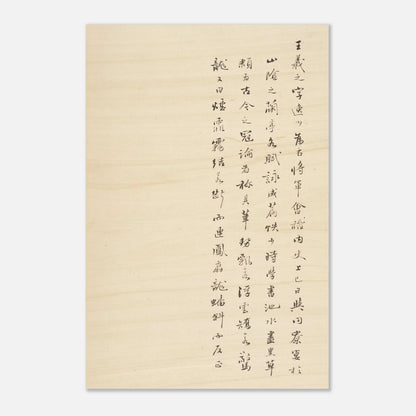 王羲之字逸少為右將軍會稽內史上巳日與同寮宴於
山陰之蘭亭各賦詠成篇什少時學書池水盡黑草
類為古今之冠論者稱其筆勢飄若浮雲矯若驚
龍又曰煙霏霧結若斷而還連鳳翥龍蟠斜而反正